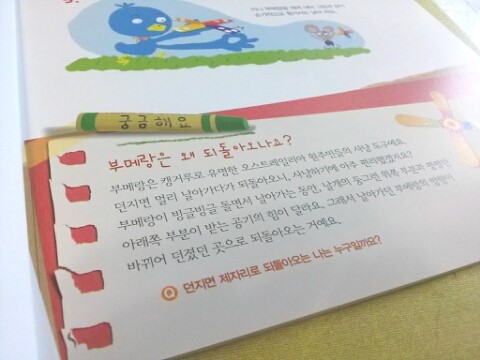 궁금해요
부메랑은 왜 되돌아오나요?
부메랑은 캥거루로 유명한 오스트레일리아 원주민들의 사냥 도구예요.
던지면 멀리 날아가다가 되돌아오니, 사냥하기에 아주 편리했겠지요?
부메랑이 빙글빙글 돌면서 날아가는 동안, 날개의 둥그런 위쪽 부분과 평평한
아래쪽 부분이 받는 공기의 힘이 달라요. 그래서 날아가던 부메랑의 방향이
바뀌어 던졌던 곳으로 되돌아오는 거예요.
Q 던지면 제자리로 되돌아오는 나는 누구일까요?